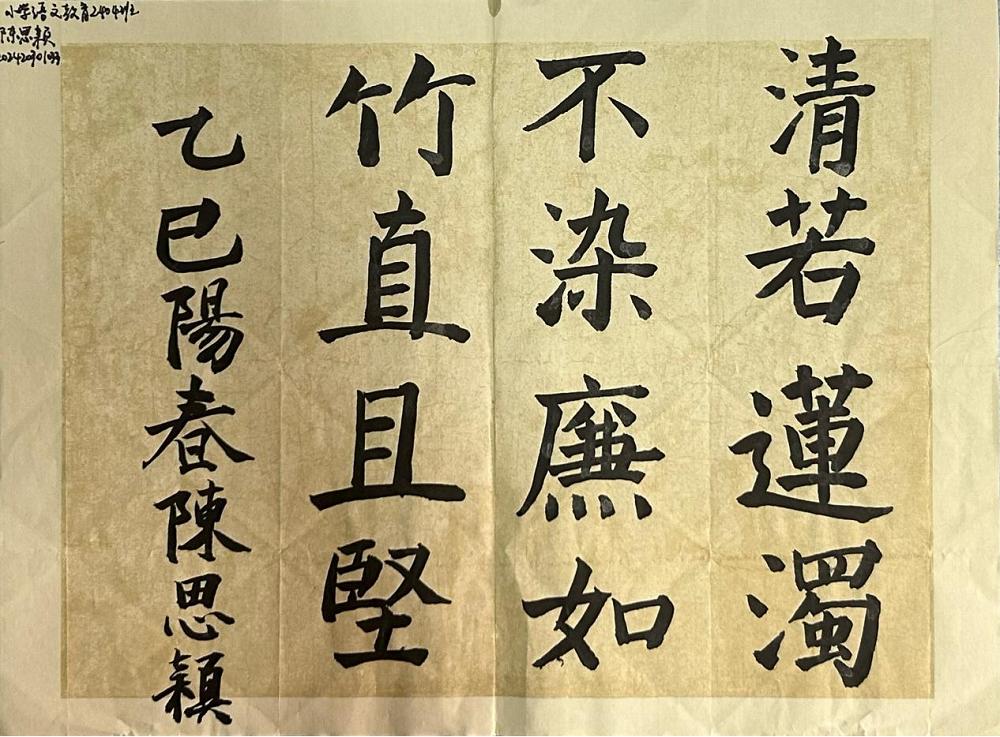 清若蓮濁
不染廉如
竹直且堅
乙巳陽春陳思穎
小学语文教育2404班
陈思颖